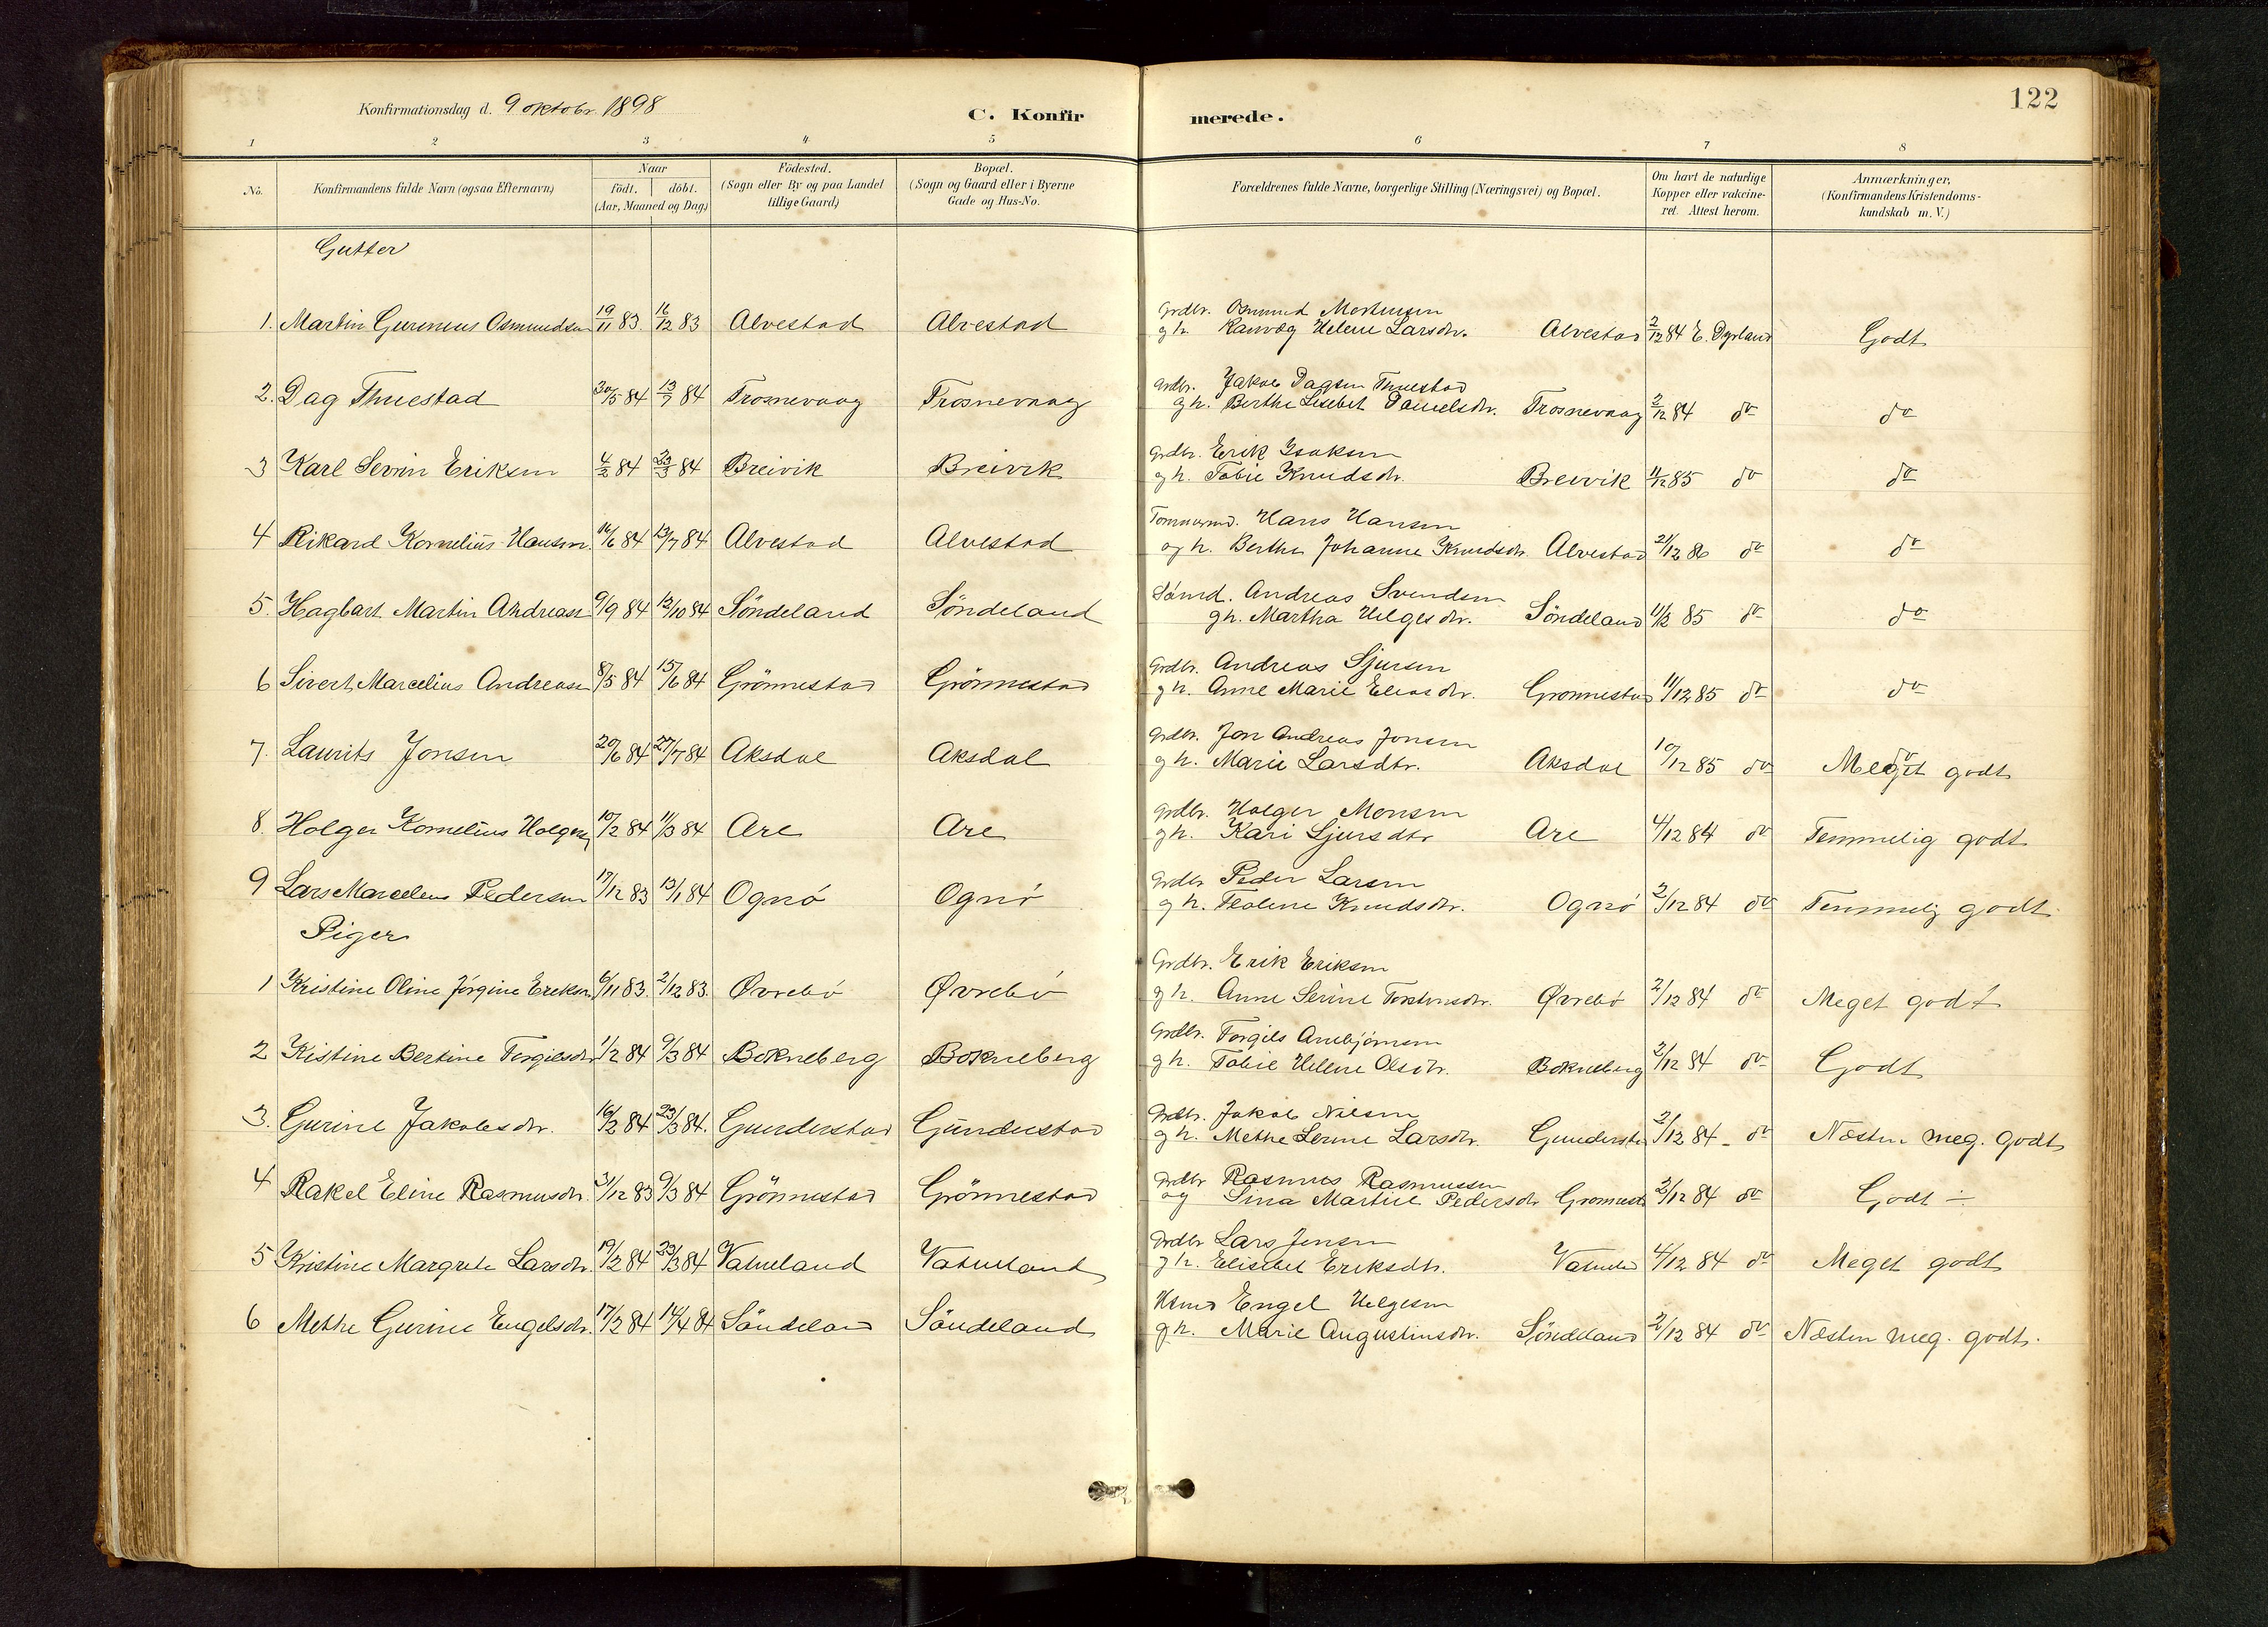 122
Konfirmationsdag d. 9 oktobr. 1898
C. Konfirmerede.
1 2 3 4 5 6 7 8
No. Konfirmandens fulde Navn (ogsaa Efternavn) Naar födt. döbt. (Aar, Maaned og Dag) Födested. (Sogn eller By og paa Landet tillige Gaard) Bopæl. (Sogn og Gaard eller i Byerne Gade og Hus-No. Forældrenes fulde Navne, borgerlige Stilling (Næringsvei) og Bopæl. Om havt de naturlige Kopper eller vakcineret. Attest herom. Anmærkninger, (Konfirmandens Kristendomskundskab m. V.)
Gutter
1. Martin Osmundsen 19/11 83 16/12 83 Alvestad Alvestad Grdbr. Osmund Mortensen
g h. Helene Larsdtr. Alvestad 2/12 84 E. Dyrland Godt
2. Dag Thuestad 30/5 84 13/7 84 Trosnevaag Trosnevaag Grdbr. Jakob Dagsen Thuestad
g h. Berthe Lisebet Danielsdtr. Trosnevaag 2/12 84 do do
3 Karl Sevrin Eriksen 4/2 84 23/3 84 Breivik Breivik Grdbr. Erik Isaksen
g h. Tobie Knudsdtr. Breivik 11/12 85 do do
4 Rikard Kornelius Hansen 16/6 84 13/7 84 Alvestad Alvestad Hans Hansen
og h. Berthe Johanne Knudsdtr. Alvestad 21/12 86 do do
5. Hagbart Martin Andreasen 9/9 84 12/10 84 Söndeland Söndeland Andreas Svendsen
g h. Martha Helgesdtr. Söndeland 11/12 85 do do
6 Sivert Marcelius Andreasen 8/5 84 15/6 84 Grönnestad Grönnestad Grdbr. Andreas Sjursen
g h. Anne Marie Eliasdtr. Grönnestad 11/12 85 do do
7. Laurits Jonsen 20/6 84 27/7 84 Aksdal Aksdal Grdbr. Jon Andreas Jonsen
g h. Marie Larsdtr. Aksdal 10/12 85 do Meget godt
8. Holger Kornelius Holgersen 10/2 84 11/3 84 Are Are Grdbr. Holger Monsen
g h. Kari Sjursdtr Are 4/12 84 do Temmelig godt
9 Lars Marcelius Pedersen 17/12 83 13/1 84 Ognø Ognø Grdbr Peder Larsen
g h. Knudsdtr. Ognø 2/12 84 do Temmelig godt.
Piger
1 Kristine Oline Jörgine Eriksen 6/11 83. 2/12 83. Øvrebö Øvrebö Grdbr. Erik Eriksen
g h. Anne Serine Torstensdtr. Øvrebö 2/12 84 do Meget godt
2 Kistine Bertine Torgilsdtr 1/2 84 9/3 84 Bokneberg Bokneberg Grdbr. Torgils Arnbjörnsen
g h. Tobie Helene Olsdtr. Bokneberg 2/12 84 do Godt
3. Gurine Jakobsdtr. 16/2 84 23/3 84. Gunderstad Gunderstad Grdbr. Jakob Nilsen
g h. Methe Serine Larsdtr. Gundersta 2/12 84 do Næsten meg. godt
4 Rakel Eline Rasmusdtr. 31/12 83 9/3 84 Grönnestad Grönnestad Grdbr Rasmus Rasmussen
og Sina Martine Pedersdtr Grönnest 2/12 84 do Godt ÷
5 Kristine Margrete Larsdtr. 19/2 84 23/3 84 Vatneland Vatneland Grdbr Lars Jensen
g h. Elisebet Eriksdtr. 4/12 84 do Meget godt
6 Methe Gurine Engelsdtr. 17/2 84 14/4 84 Söndeland Söndeland Hsmd Engel Helgesen
g h. Marie Augustinsdtr. Söndeland 2/12 84 do Næsten meg. godt.